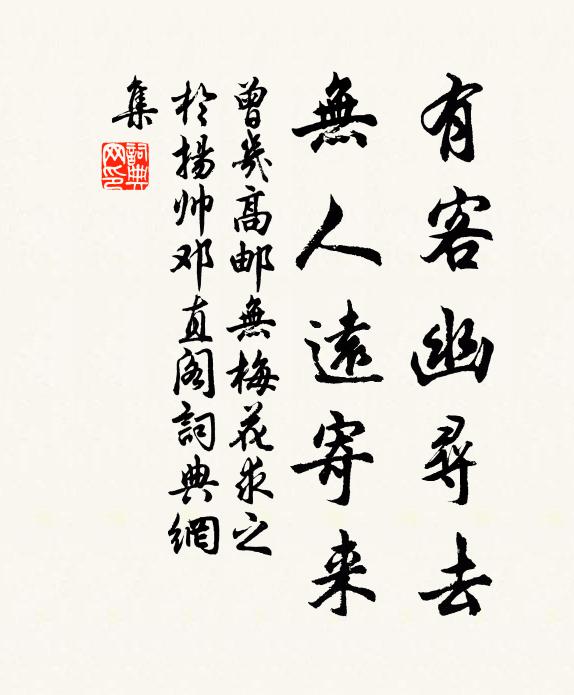 有客幽尋去
無人遠寄来
曾幾高邮無梅花求之
於揚帅邓直阁詞典網
集
詞典
网印